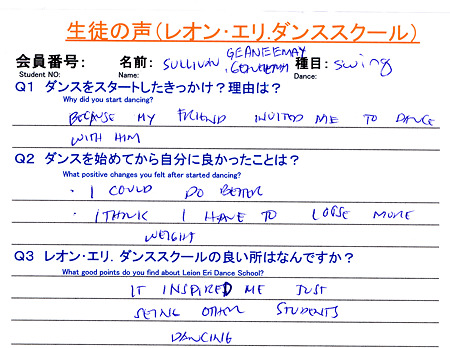 生徒の声（レオン・エリ.ダンススクール）
会員番号: 名前: SULLIVAN, GEANEEMAY 種目: swing
Student NO: Name: Dance:
Q1 ダンスをスタートしたきっかけ？理由は？
Why did you start dancing?
BECAUSE MY FRIEND INVITED ME TO DANCE
WITH HIM
Q2 ダンスを始めてから自分に良かったことは？
What positive changes you felt after started dancing?
・I COULD DO BETTER
・I THINK I HAVE TO LOOSE MORE
WEIGHT
Q3 レオン・エリ. ダンススクールの良い所はなんですか？
What good points do you find about Leion Eri Dance School?
IT INSPIRED ME JUST
SEING OTHER STUDENTS
DANCING